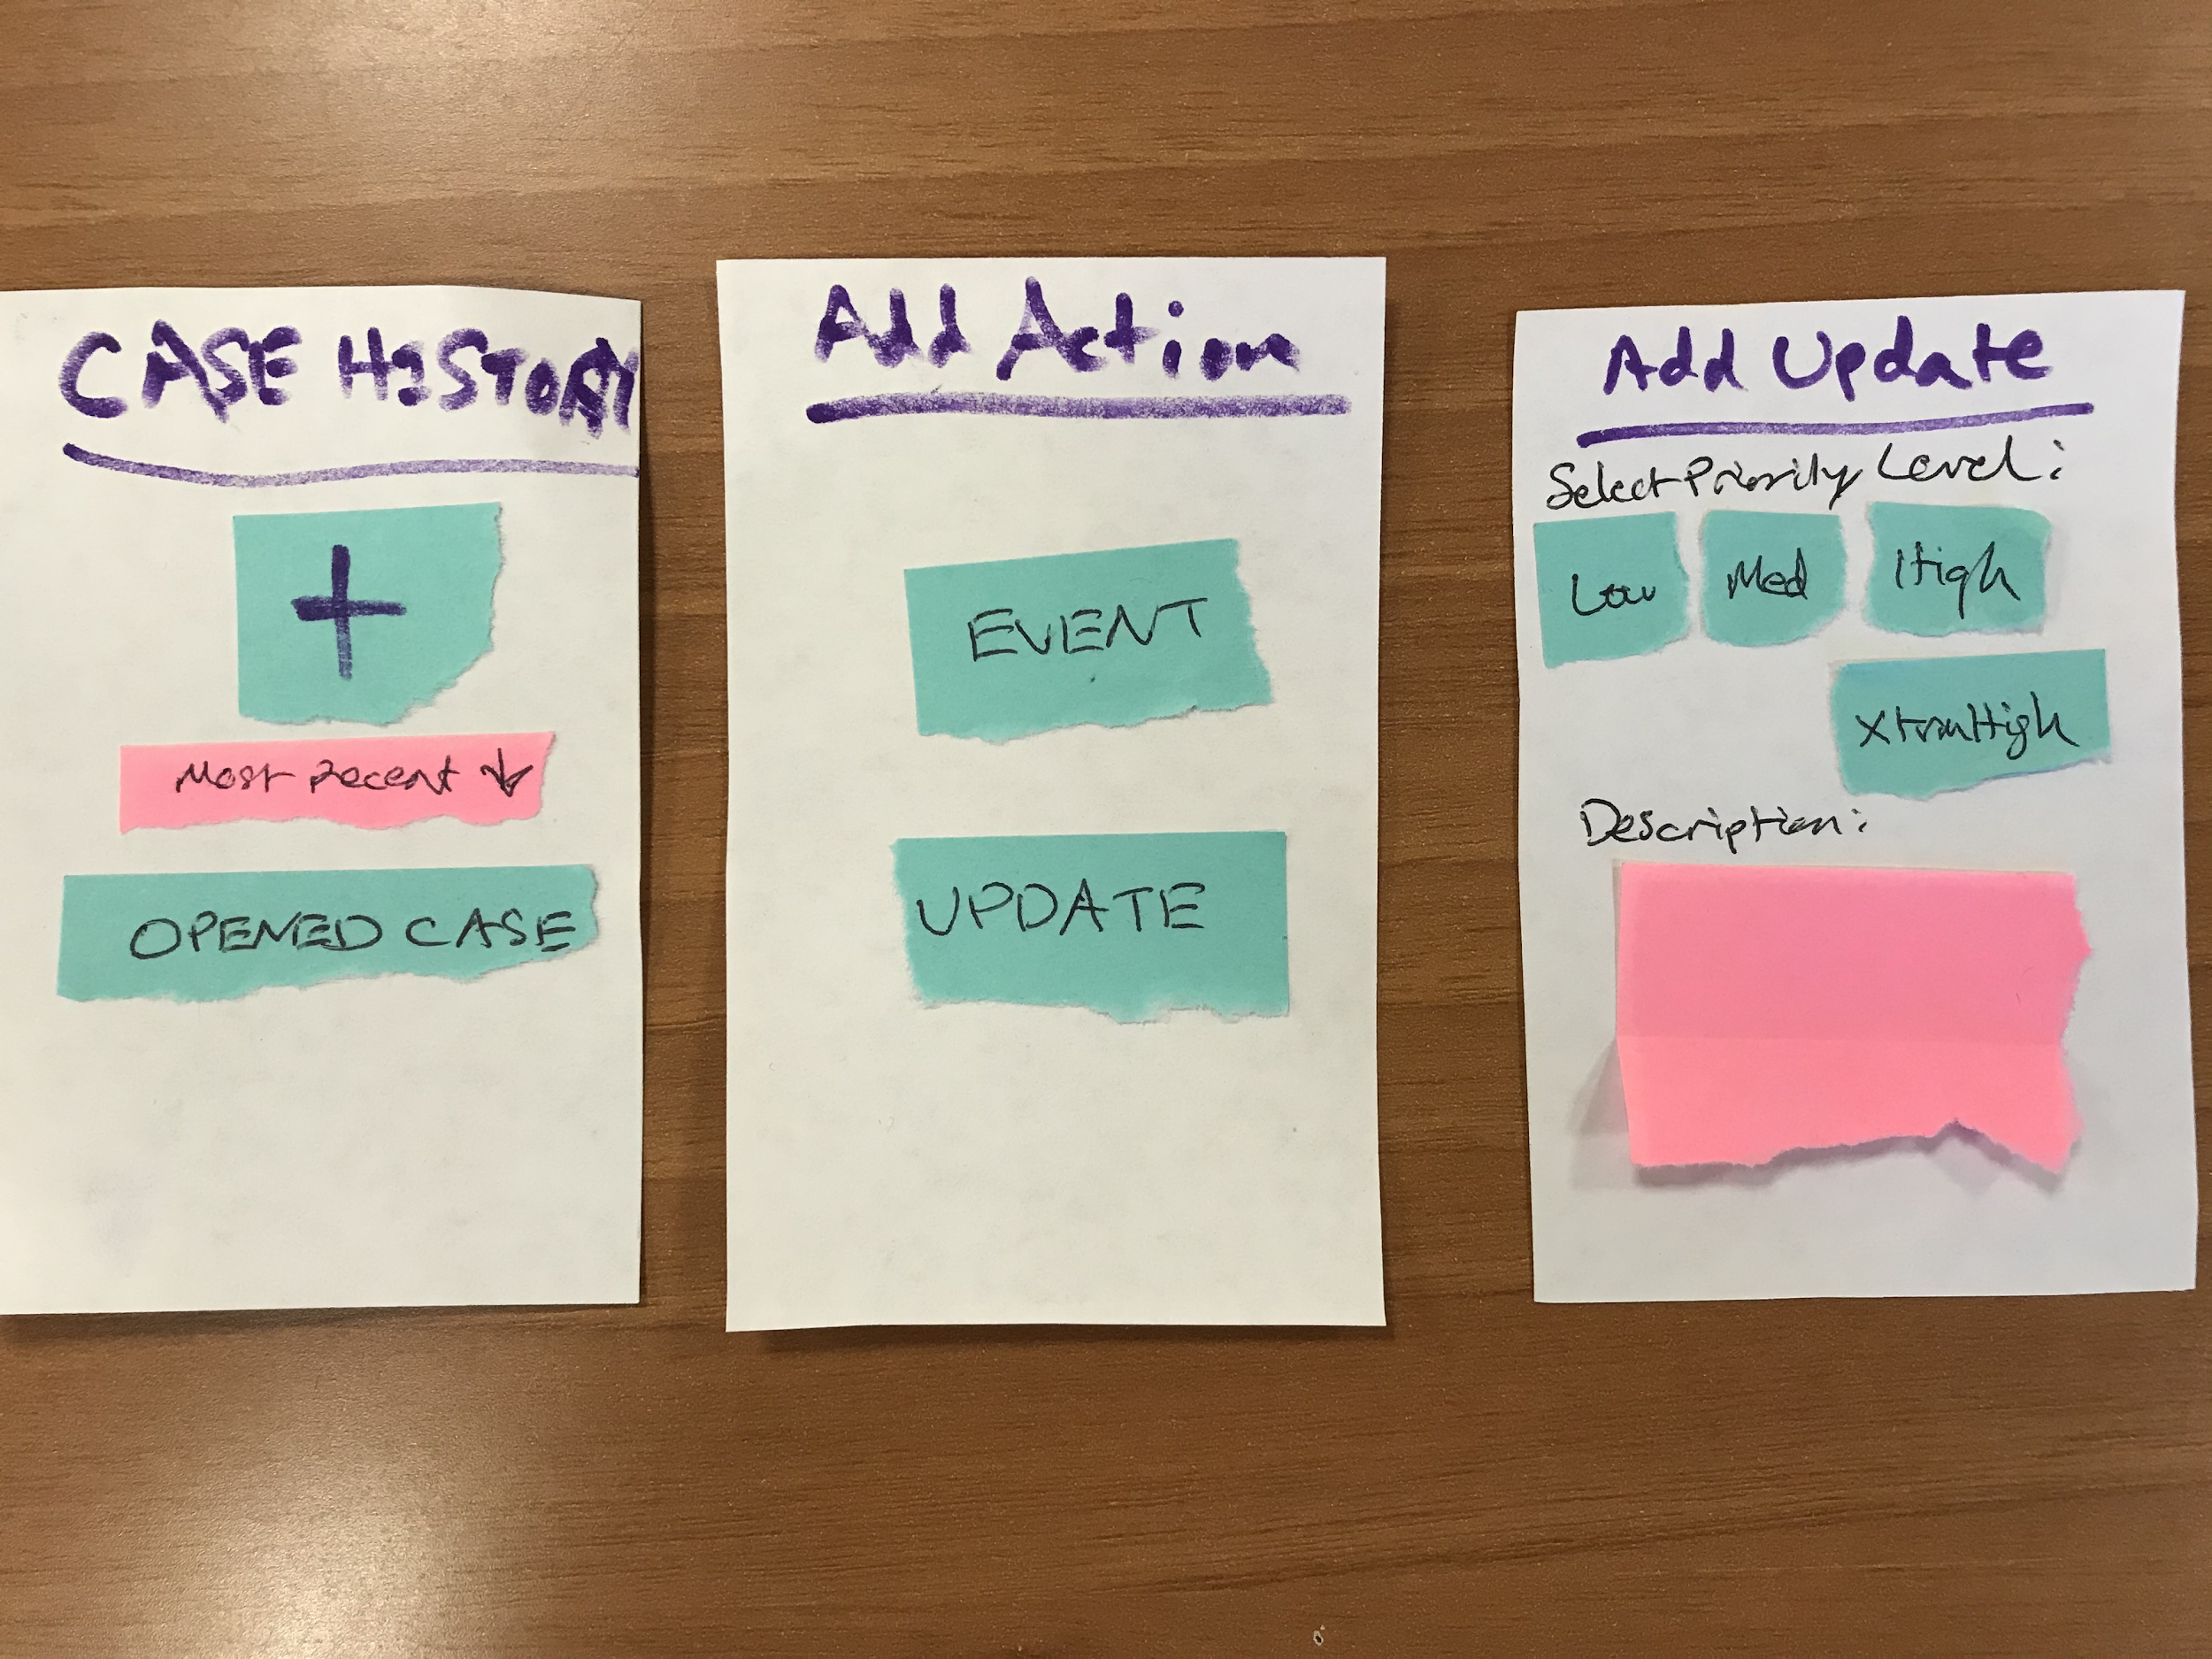 CASE HISTORY
+
Most Recent ↓
OPENED CASE
Add Action
EVENT
UPDATE
Add Update
Select Priority Level:
Low Med High
XtraHigh
Description: